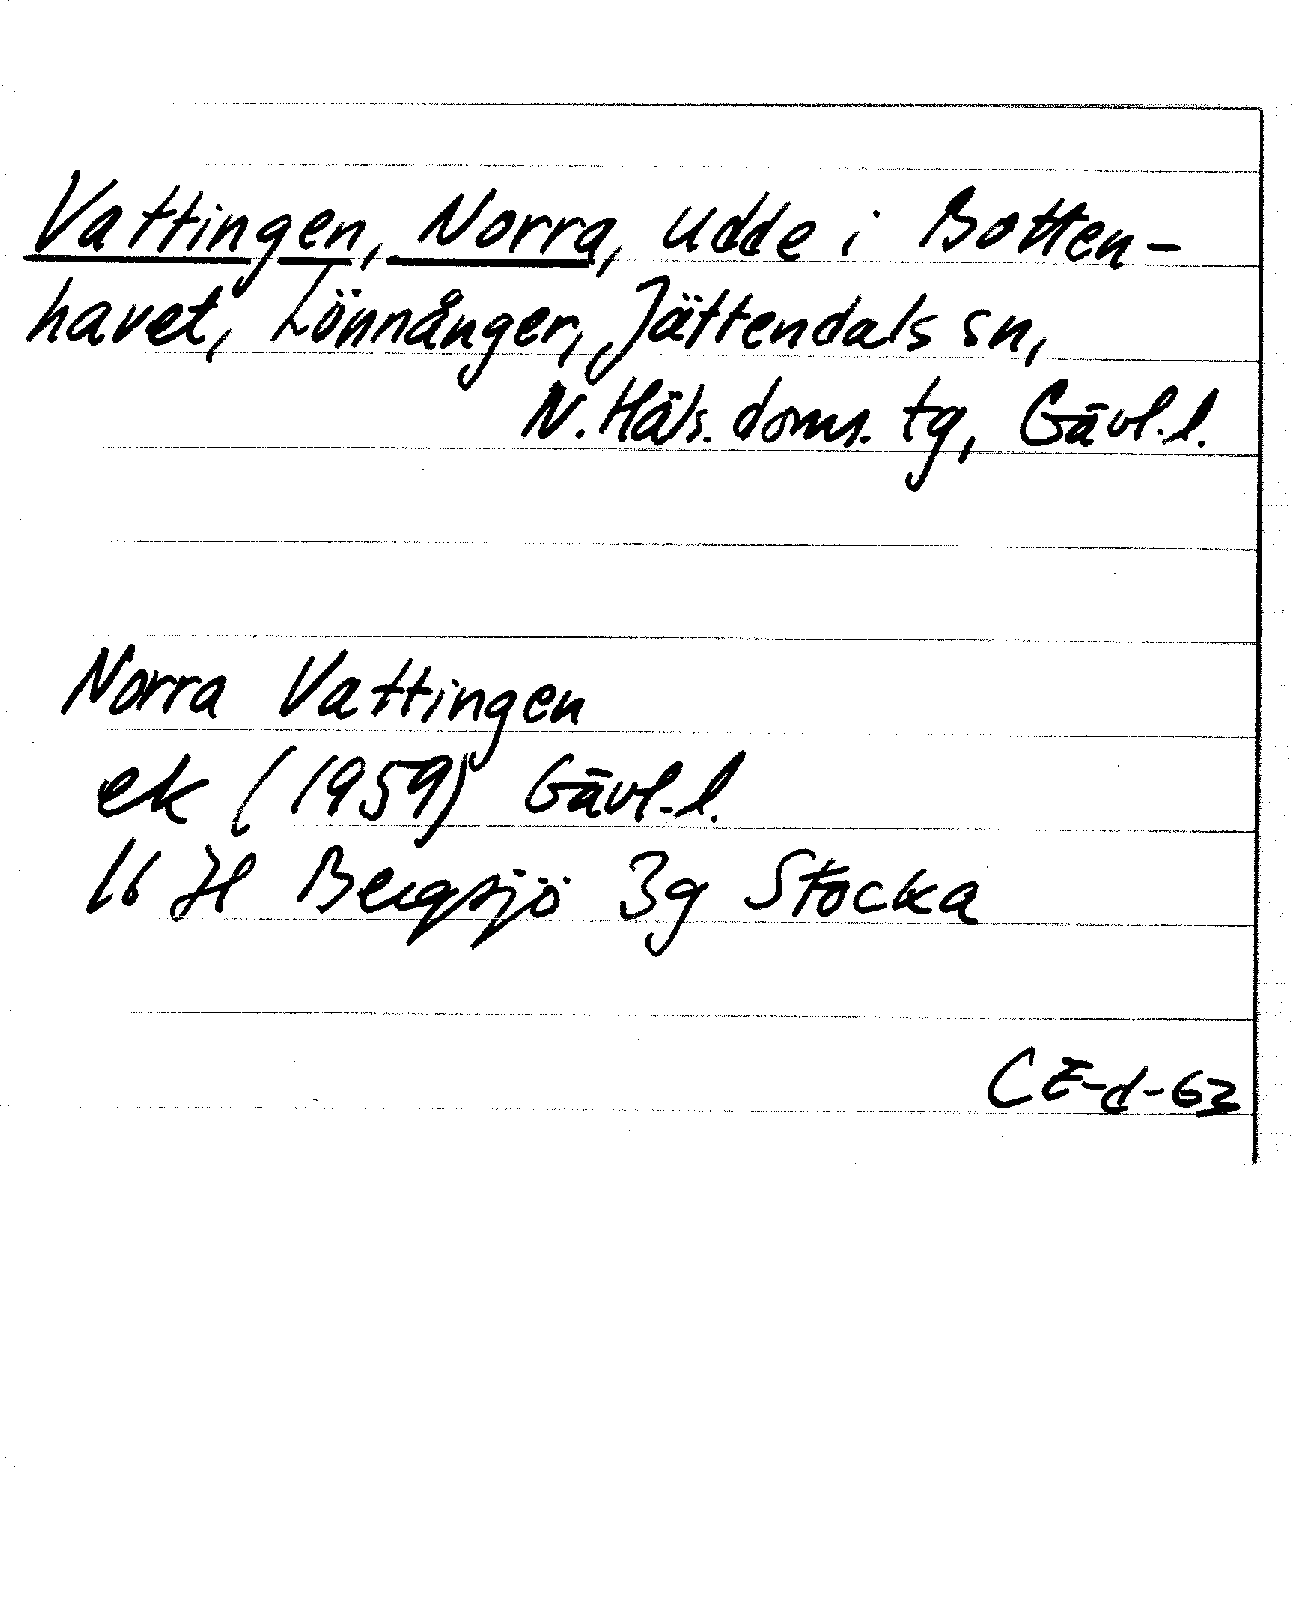 Vattingen, Norra, udde i Botten-
havet, Lönnånger, Jättendals sn,
N. Häls. doms. tg, Gävl. l.
Norra Vattingen
ek (1959) Gävl. l.
16 H Bergsjö 3g Stocka
CE-d-63